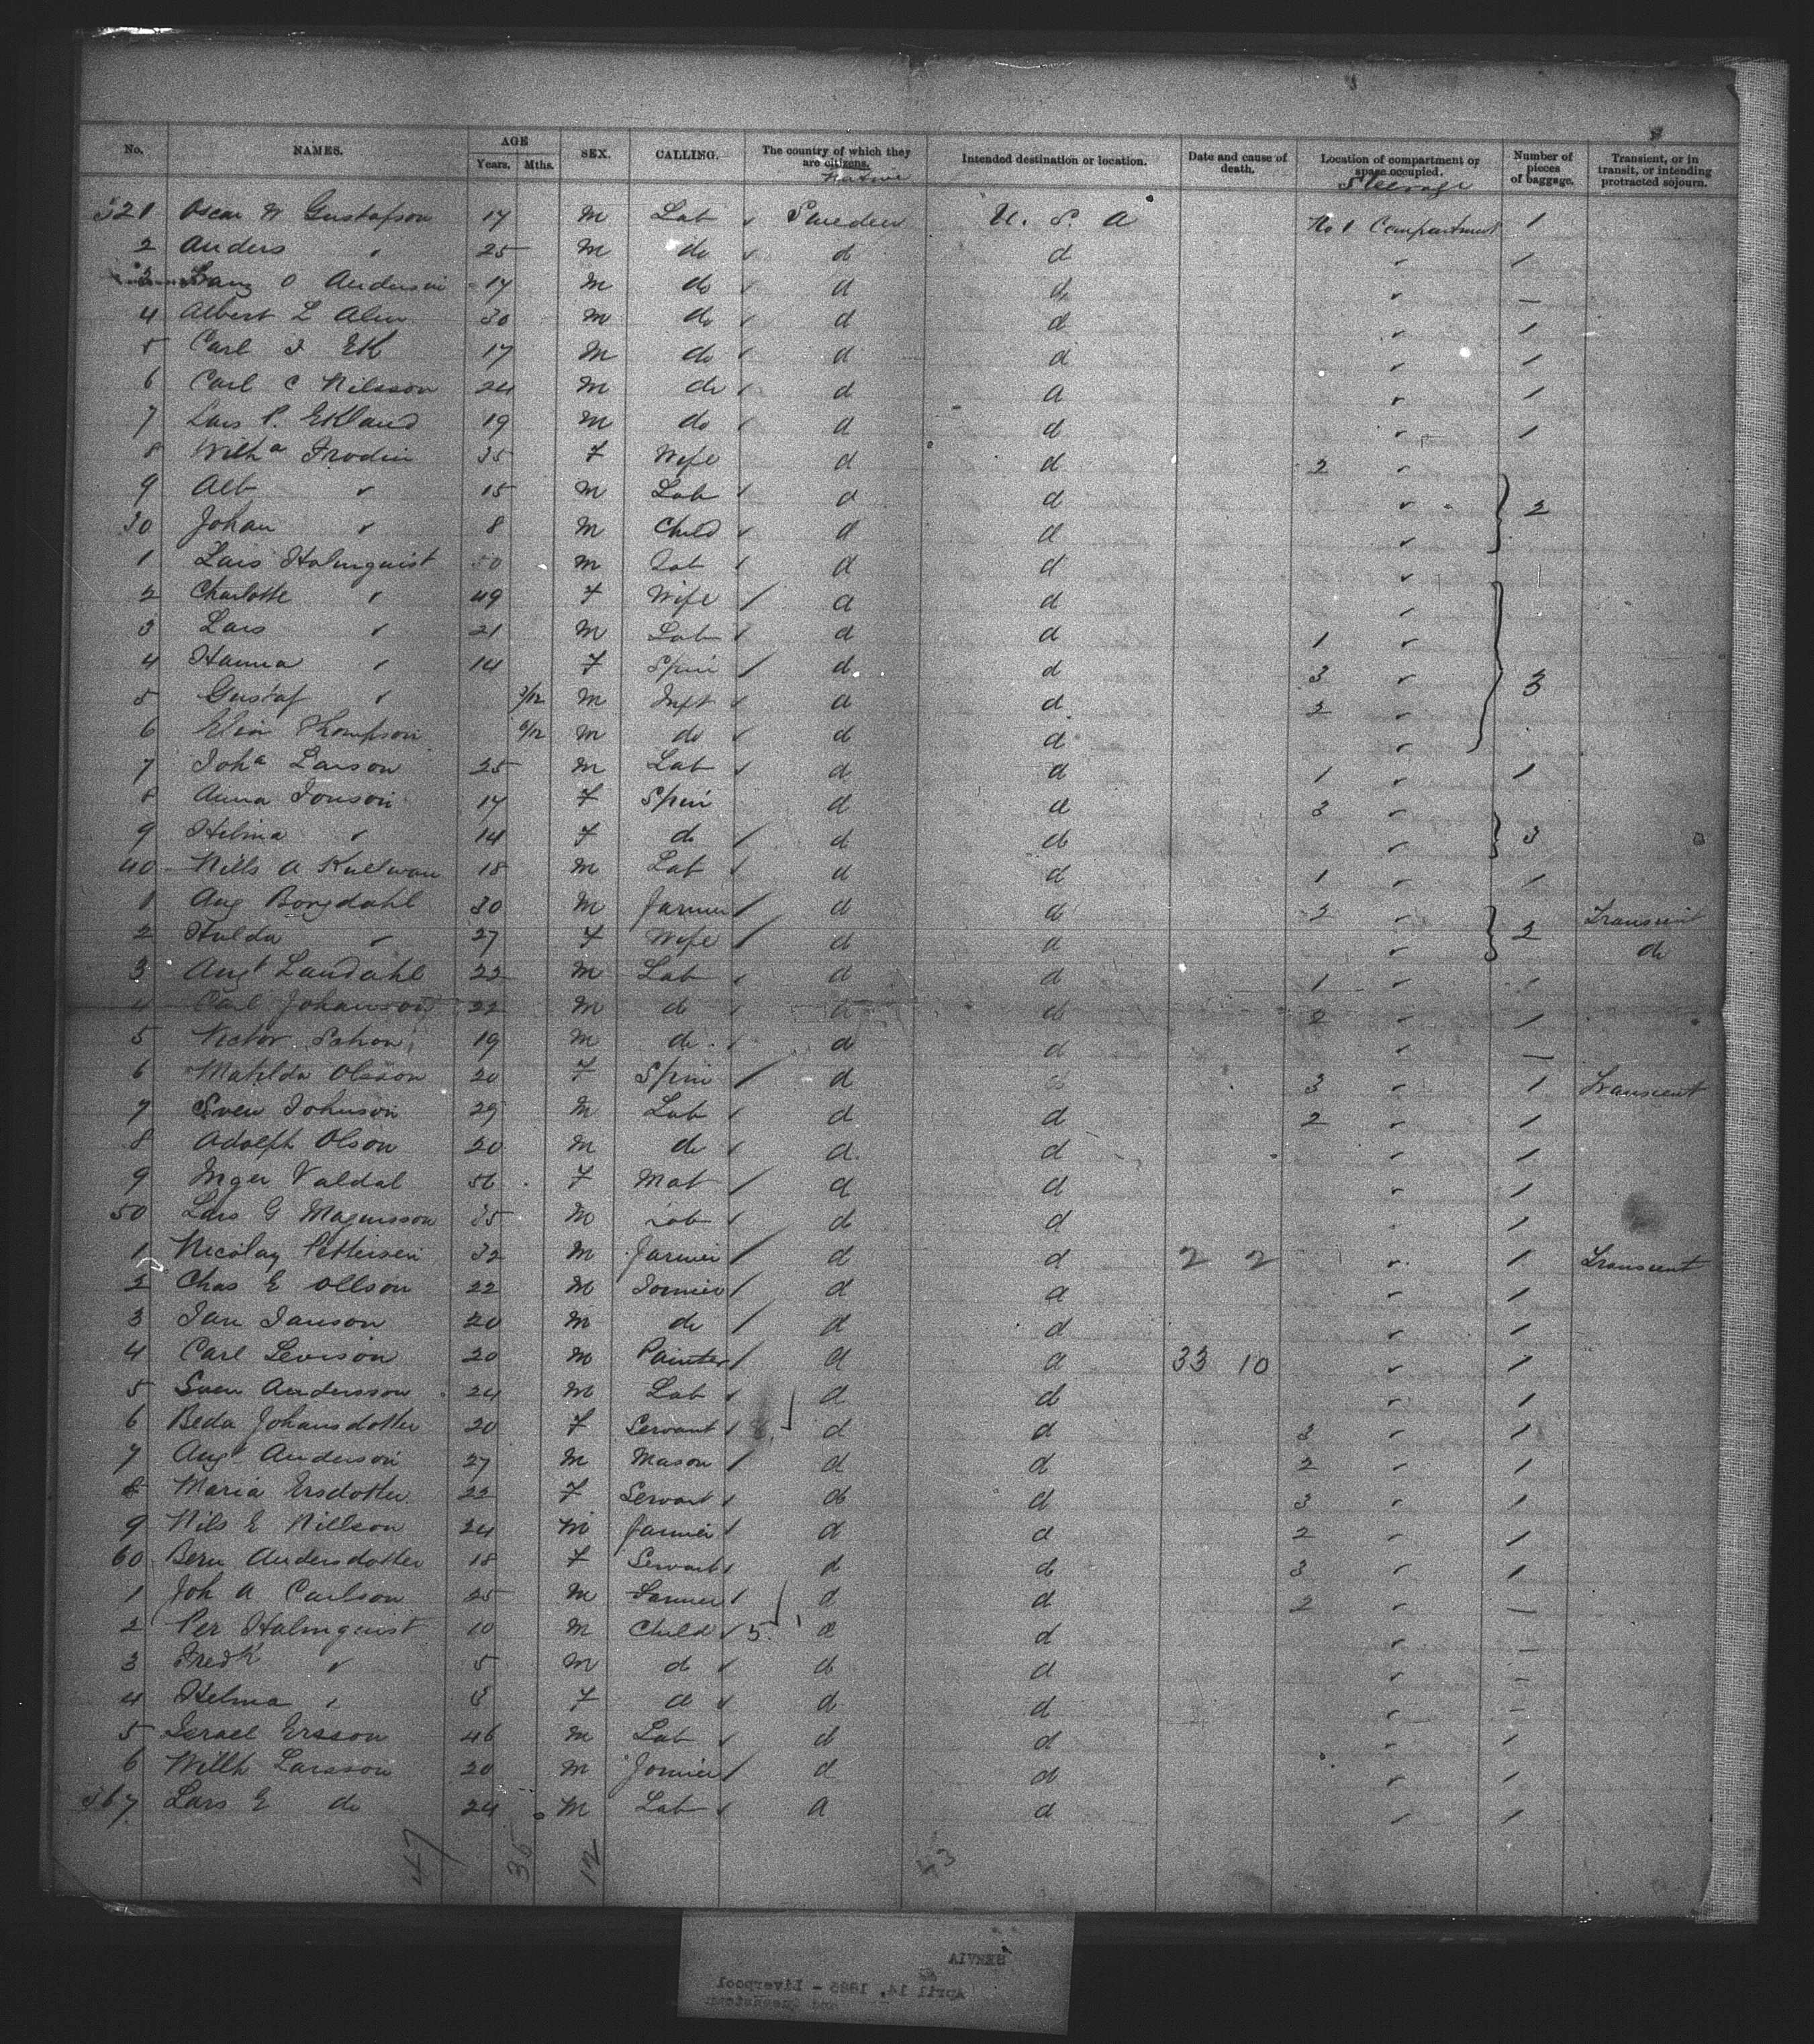 No. NAMES. AGE Years. Mths. SEX. CALLING. The country of which they are citizens. Native Intended destination or location. Date and cause of death. Location of compartment or space occupied. Steerage Number of pieces of baggage. Transient, or in transit, or intending protracted sojourn.
521 Oscar W Gustafson 17 M Lab ✓ Sweden U. S. A No 1 Compartment 1
2 Anders " 25 M do ✓ d d " 1
3 O Anderson 17 M do ✓ d d " —
4 Albert L Alm 30 M do ✓ d d " 1
5 Carl J Ek 17 M do ✓ d d " 1
6 Carl C Nilsson 24 M do ✓ d d " 1
7 Lars P. Eklund 19 M do ✓ d d " 1
8 Wilha Frodin 35 F Wife d d 2 "
9 Alb " 15 M Lab ✓ d d " 2
30 Johan " 8 M Child ✓ d d "
1 Lars Holmquist 50 M Lab ✓ d d "
2 Charlotte " 49 F Wife / d d "
3 Lars " 21 M Lab ✓ d d 1 "
4 Hanna " 14 F Spin / d d 3 " 3
5 Gustaf " 3/12 M Inft ✓ d d 2 "
6 Thompson 6/12 M do ✓ d d "
7 Joha Larson 25 M Lab ✓ d d 1 " 1
8 Anna Jonson 17 F Spin d d 3 "
9 Hilma " 14 F do / d d " 3
40 Nills A Kullman 18 M Lab ✓ d d 1 " 1
1 Aug Borgdahl 30 M Farmer / d d 2 " Transient
2 Hulda " 27 F Wife / d d " 2 do
3 Augt Landahl 22 M Lab ✓ d d 1 " 1
4 Carl Johanson 22 M do ✓ d d 2 " 1
5 Victor Schon 19 M do ✓ d d " —
6 Matilda Olsson 20 F Spin / d d 3 " 1 Transient
7 Sven Johnson 29 M Lab ✓ d d 2 " 1
8 Adolph Olson 20 M do ✓ d d " 1
9 Inger Valdal 56 F Mat / d d " 1
50 Lars G Magnusson 35 M Lab ✓ d d " 1
1 Nicolay Pettersen 32 M Farmer / d d 2 2 " 1 Transient
2 Chas E Ollson 22 M Joiner / d d " 1
3 Jan Janson 20 M do / d d " 1
4 Carl Levison 20 M Painter / d d 33 10 " 1
5 Sven Andersson 24 M Lab ✓ d d " 1
6 Beda Johansdotter 20 F Servant ✓ d d 3 " 1
7 Augt Anderson 27 M Mason / d d 2 " 1
8 Maria Ersdotter 22 F Servant ✓ d d 3 " 1
9 Nils E Nillson 24 M Farmer / d d 2 " 1
60 Bern Andersdotter 18 F Servant ✓ d d 3 " 1
1 Joh A Carlson 25 M Farmer / d d 2 " —
2 Per Holmquist 10 M Child ✓ 5 d d " —
3 Fredk " 5 M d ✓ d d " —
4 Helma " F d ✓ d d " —
5 Israel Ersson 46 M Lab ✓ d d " 1
6 Willh Larsson 20 M Joiner / d d " 1
567 Lars E do 24 M Lab ✓ d d " 1
47 35 12 53
SERVIA
April 14, 1885 - Liverpool
and Queenstown